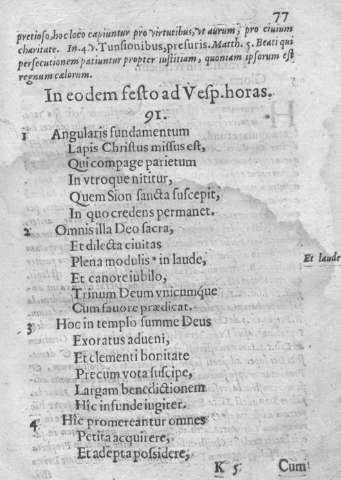 77
pretioso, hoc loco capiuntur pro virtutibus, vt aurum, pro ciuium
charitate. In. 4. v. Tunsionibus, presuris. Matth. 5. Beati qui
persecutionem patiuntur propter iustitiam, quoniam ipsorum est
regnum cælorum.
In eodem festo ad Vesp. horas.
91.
1 Angularis fundamentum
Lapis Christus missus est,
Qui compage parietum
In vtroque nititur,
Quem Sion sancta suscepit,
In quo credens permanet.
2 Omnis illa Deo sacra,
Et dilecta ciuitas
Plena modulis * in laude,
Et laude
Et canore iubilo,
Trinum Deum vnicumque
Cum fauore prædicat.
3 Hoc in templo summe Deus
Exoratus adueni,
Et clementi bonitate
Precum vota suscipe,
Largam benedictionem
Hîc infunde iugiter.
4 Hîc promereantur omnes
Petita acquirere,
Et adepta possidere,
K 5. Cum